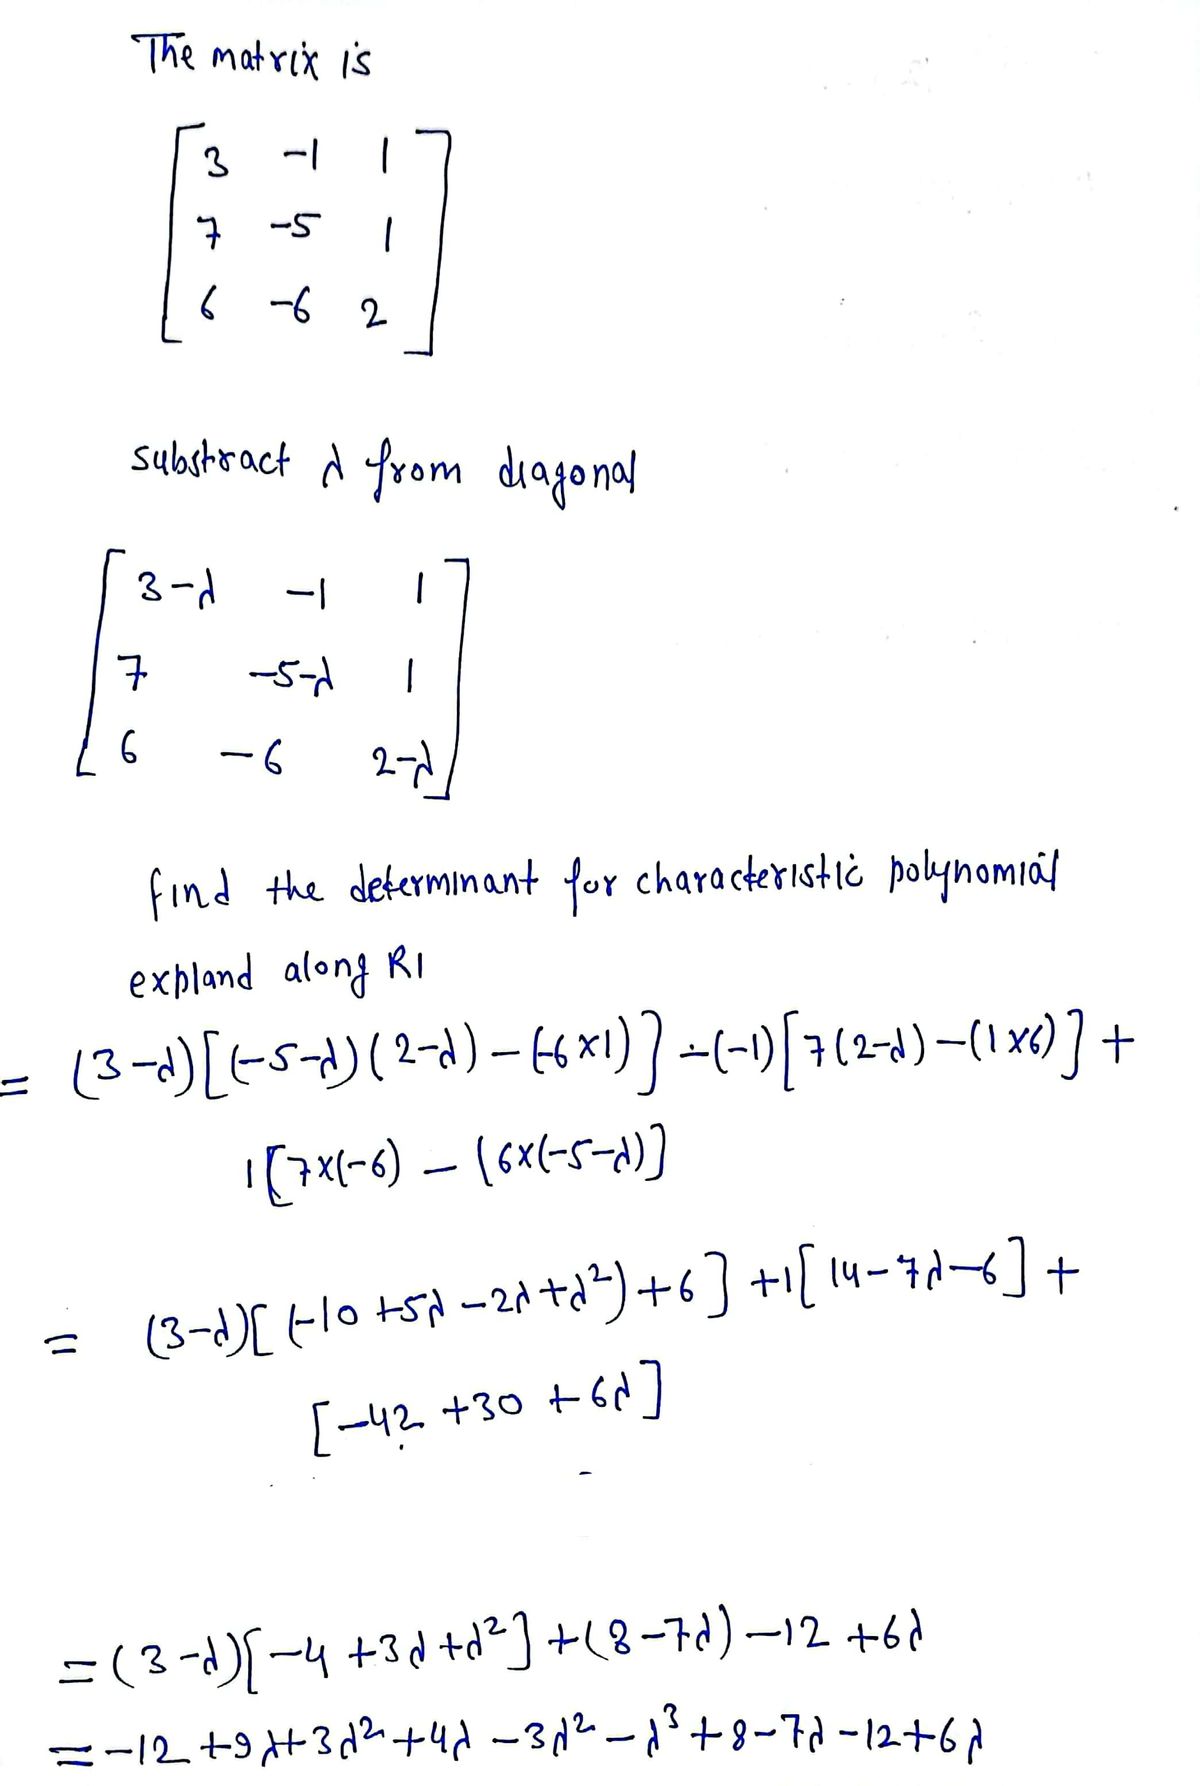 The matrix is
[3 -1 1
7 -5 1
6 -6 2]
substract λ from diagonal
[3-λ -1 1
7 -5-λ 1
6 -6 2-λ]
find the determinant for characteristic polynomial
expland along R1
= (3-λ)[(-5-λ)(2-λ)-(-6×1)] -(-1)[7(2-λ)-(1×6)] +
1[7×(-6) - (6×(-5-λ)]
= (3-λ)[(-10+5λ-2λ+λ²)+6] +1[14-7λ-6] +
[-42+30+6λ]
= (3-λ)[-4+3λ+λ²]+(8-7λ)-12+6λ
= -12+9λ+3λ²+4λ-3λ²-λ³+8-7λ-12+6λ